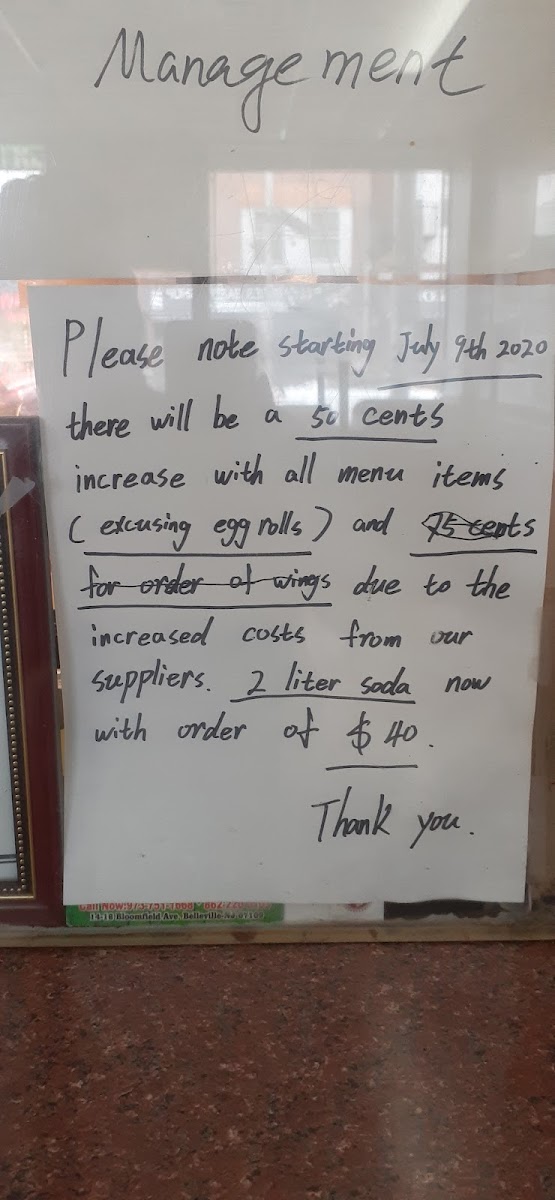 Management
Please note starting July 9th 2020
there will be a 50 cents
increase with all menu items
(excusing egg rolls) and 75 cents
for order of wings due to the
increased costs from our
suppliers. 2 liter soda now
with order of $40.
Thank you.
Call Now:973-751-1668
14-16 Bloomfield Ave. Belleville NJ 07109